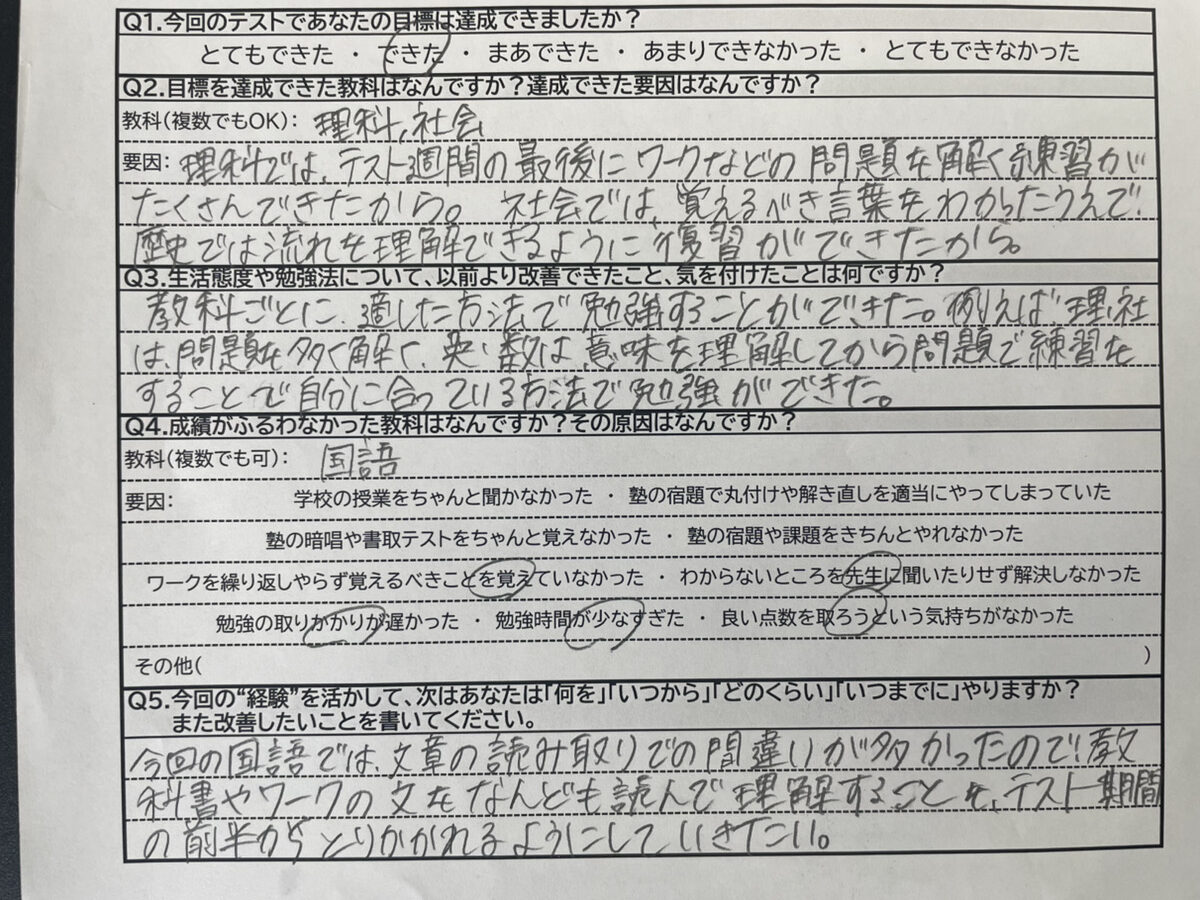 Q1.今回のテストであなたの目標は達成できましたか？
とてもできた ・ できた ・ まあできた ・ あまりできなかった ・ とてもできなかった
Q2.目標を達成できた教科はなんですか？達成できた要因はなんですか？
教科(複数でもOK)： 理科,社会
要因： 理科では、テスト週間の最後にワークなどの問題を解く練習が
たくさんできたから。 社会では、覚えるべき言葉をわかったうえで、
歴史では流れを理解できるように復習ができたから。
Q3.生活態度や勉強法について、以前より改善できたこと、気を付けたことは何ですか？
教科ごとに、適した方法で勉強することができた。例えば、理・社
は、問題を多く解く、英・数は、意味を理解してから問題で練習を
することで自分に合っている方法で勉強ができた。
Q4.成績がふるわなかった教科はなんですか？その原因はなんですか？
教科(複数でも可)： 国語
要因： 学校の授業をちゃんと聞かなかった ・ 塾の宿題で丸付けや解き直しを適当にやってしまっていた
塾の暗唱や書取テストをちゃんと覚えなかった ・ 塾の宿題や課題をきちんとやれなかった
ワークを繰り返しやらず覚えるべきことを覚えていなかった ・ わからないところを先生に聞いたりせず解決しなかった
勉強の取りかかりが遅かった ・ 勉強時間が少なすぎた ・ 良い点数を取ろうという気持ちがなかった
その他( )
Q5.今回の“経験”を活かして、次はあなたは「何を」「いつから」「どのくらい」「いつまでに」やりますか？
また改善したいことを書いてください。
今回の国語では、文章の読み取りでの間違いが多かったので、教
科書やワークの文をなんども読んで理解することを、テスト期間
の前半からとりかかれるようにしていきたい。